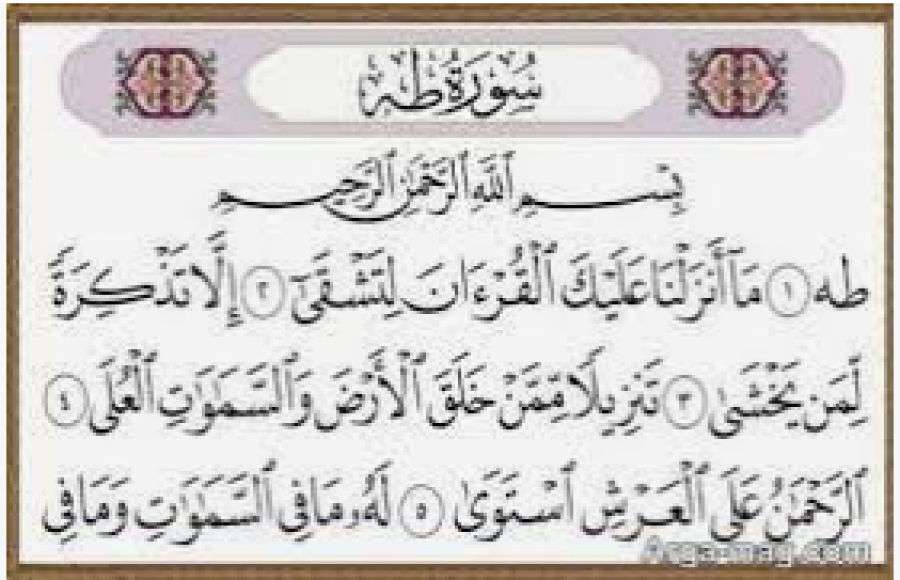 سُورَةُ طه
بِسْمِ ٱللَّهِ ٱلرَّحْمَٰنِ ٱلرَّحِيمِ
طه ١ مَآ أَنزَلْنَا عَلَيْكَ ٱلْقُرْءَانَ لِتَشْقَىٰٓ ٢ إِلَّا تَذْكِرَةً
لِّمَن يَخْشَىٰ ٣ تَنزِيلًا مِّمَّنْ خَلَقَ ٱلْأَرْضَ وَٱلسَّمَٰوَٰتِ ٱلْعُلَى ٤
ٱلرَّحْمَٰنُ عَلَى ٱلْعَرْشِ ٱسْتَوَىٰ ٥ لَهُۥ مَا فِي ٱلسَّمَٰوَٰتِ وَمَا فِي
Arga-mag.com